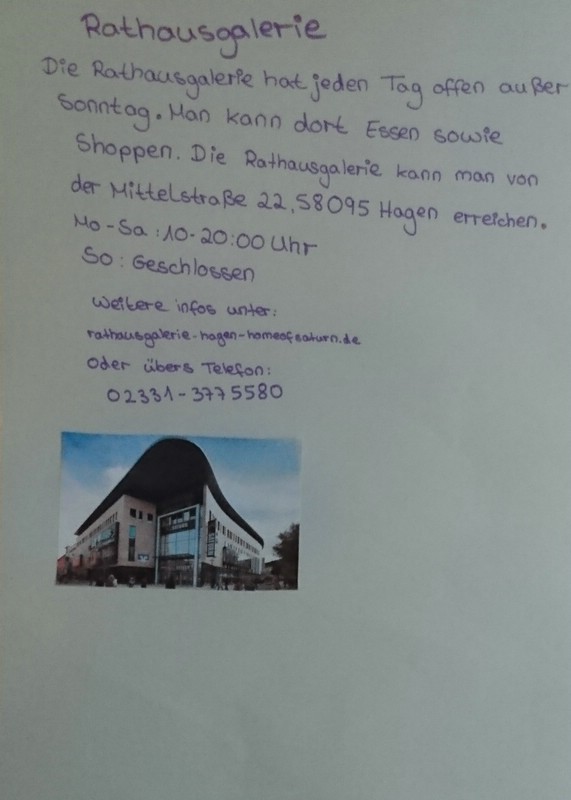 Rathausgalerie
Die Rathausgalerie hat jeden Tag offen außer
Sonntag. Man kann dort Essen sowie
Shoppen. Die Rathausgalerie kann man von
der Mittelstraße 22, 58095 Hagen erreichen.
Mo-Sa: 10-20:00 Uhr
So: Geschlossen
Weitere infos unter:
rathausgalerie-hagen-homeofsaturn.de
Oder übers Telefon:
02331-3775580